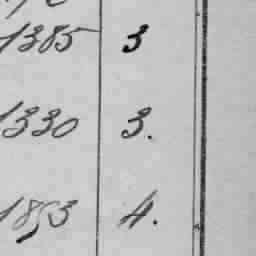 1385 3
1330 3.
1853 4.